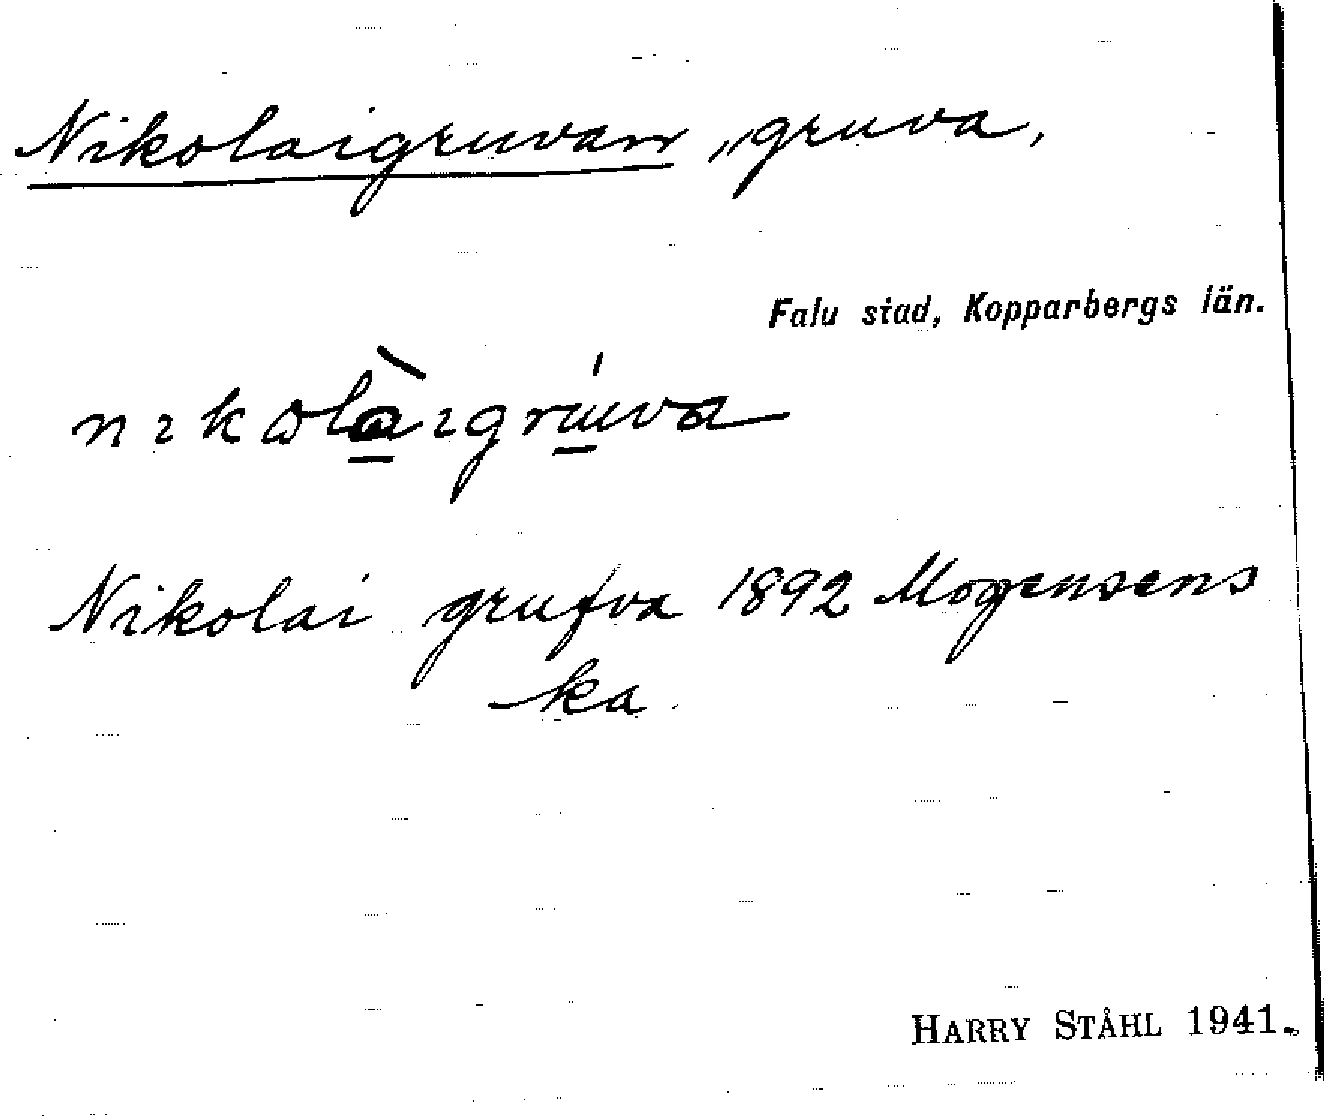 Nikolaigruvan, gruva,
Falu stad, Kopparbergs län.
nıkωlàıgrúwa
Nikolai grufva 1892 Mogensens
ka
HARRY STÅHL 1941.